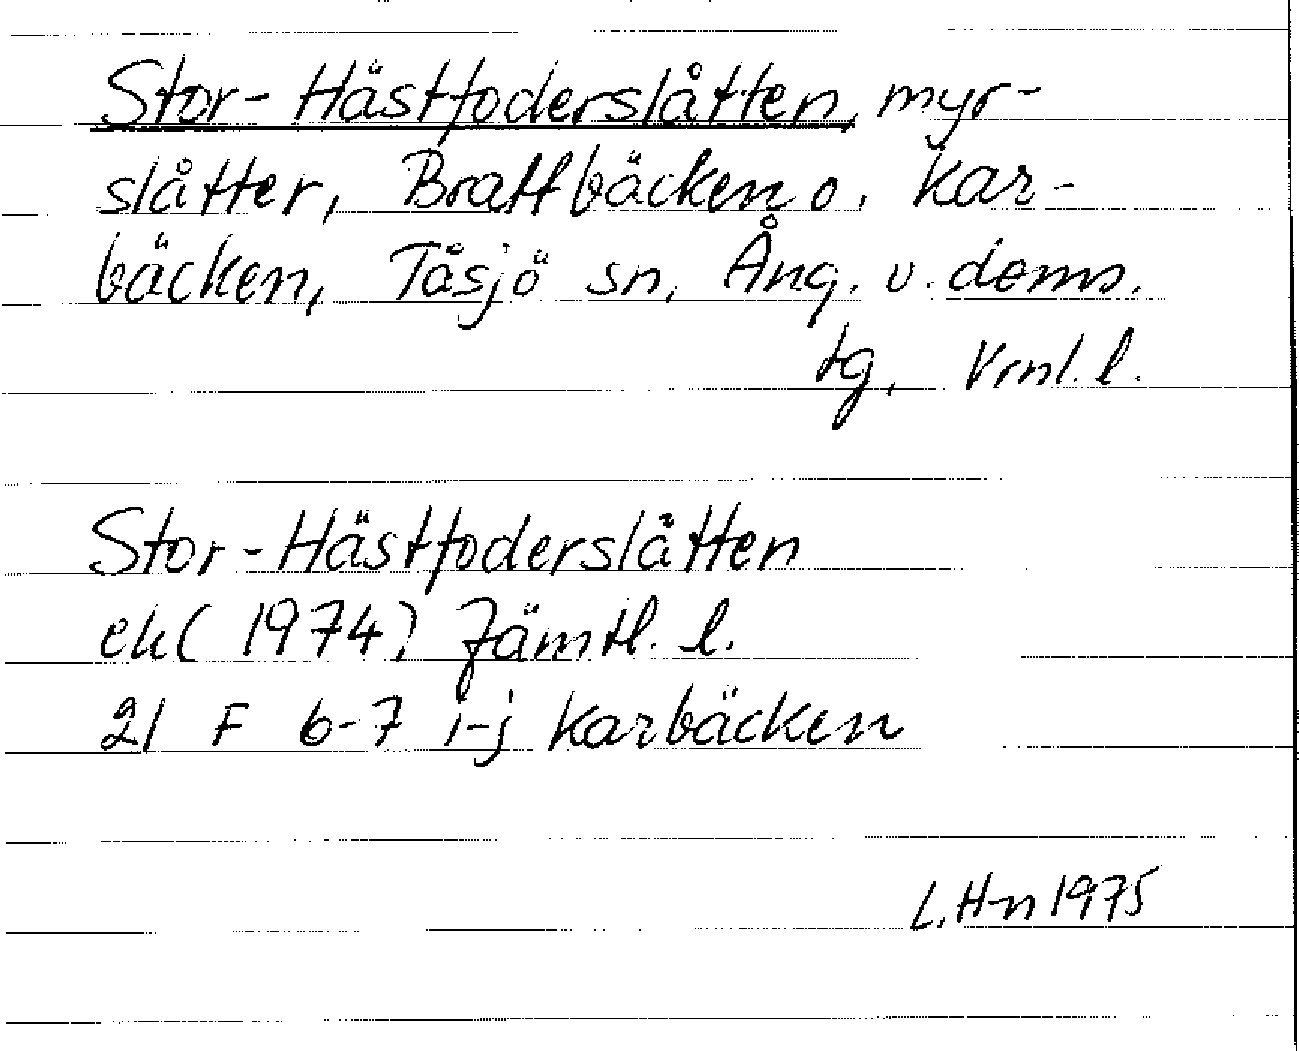 Stor-Hästfoderslåtten, myr-
slåtter, Brattbäcken o. Kar-
bäcken, Tåsjö sn, Ång. v. doms.
tg, Vrnl. l.
Stor-Hästfoderslåtten
ek (1974) Jämtl. l.
21 F 6-7 i-j Karbäcken
L. H-n 1975